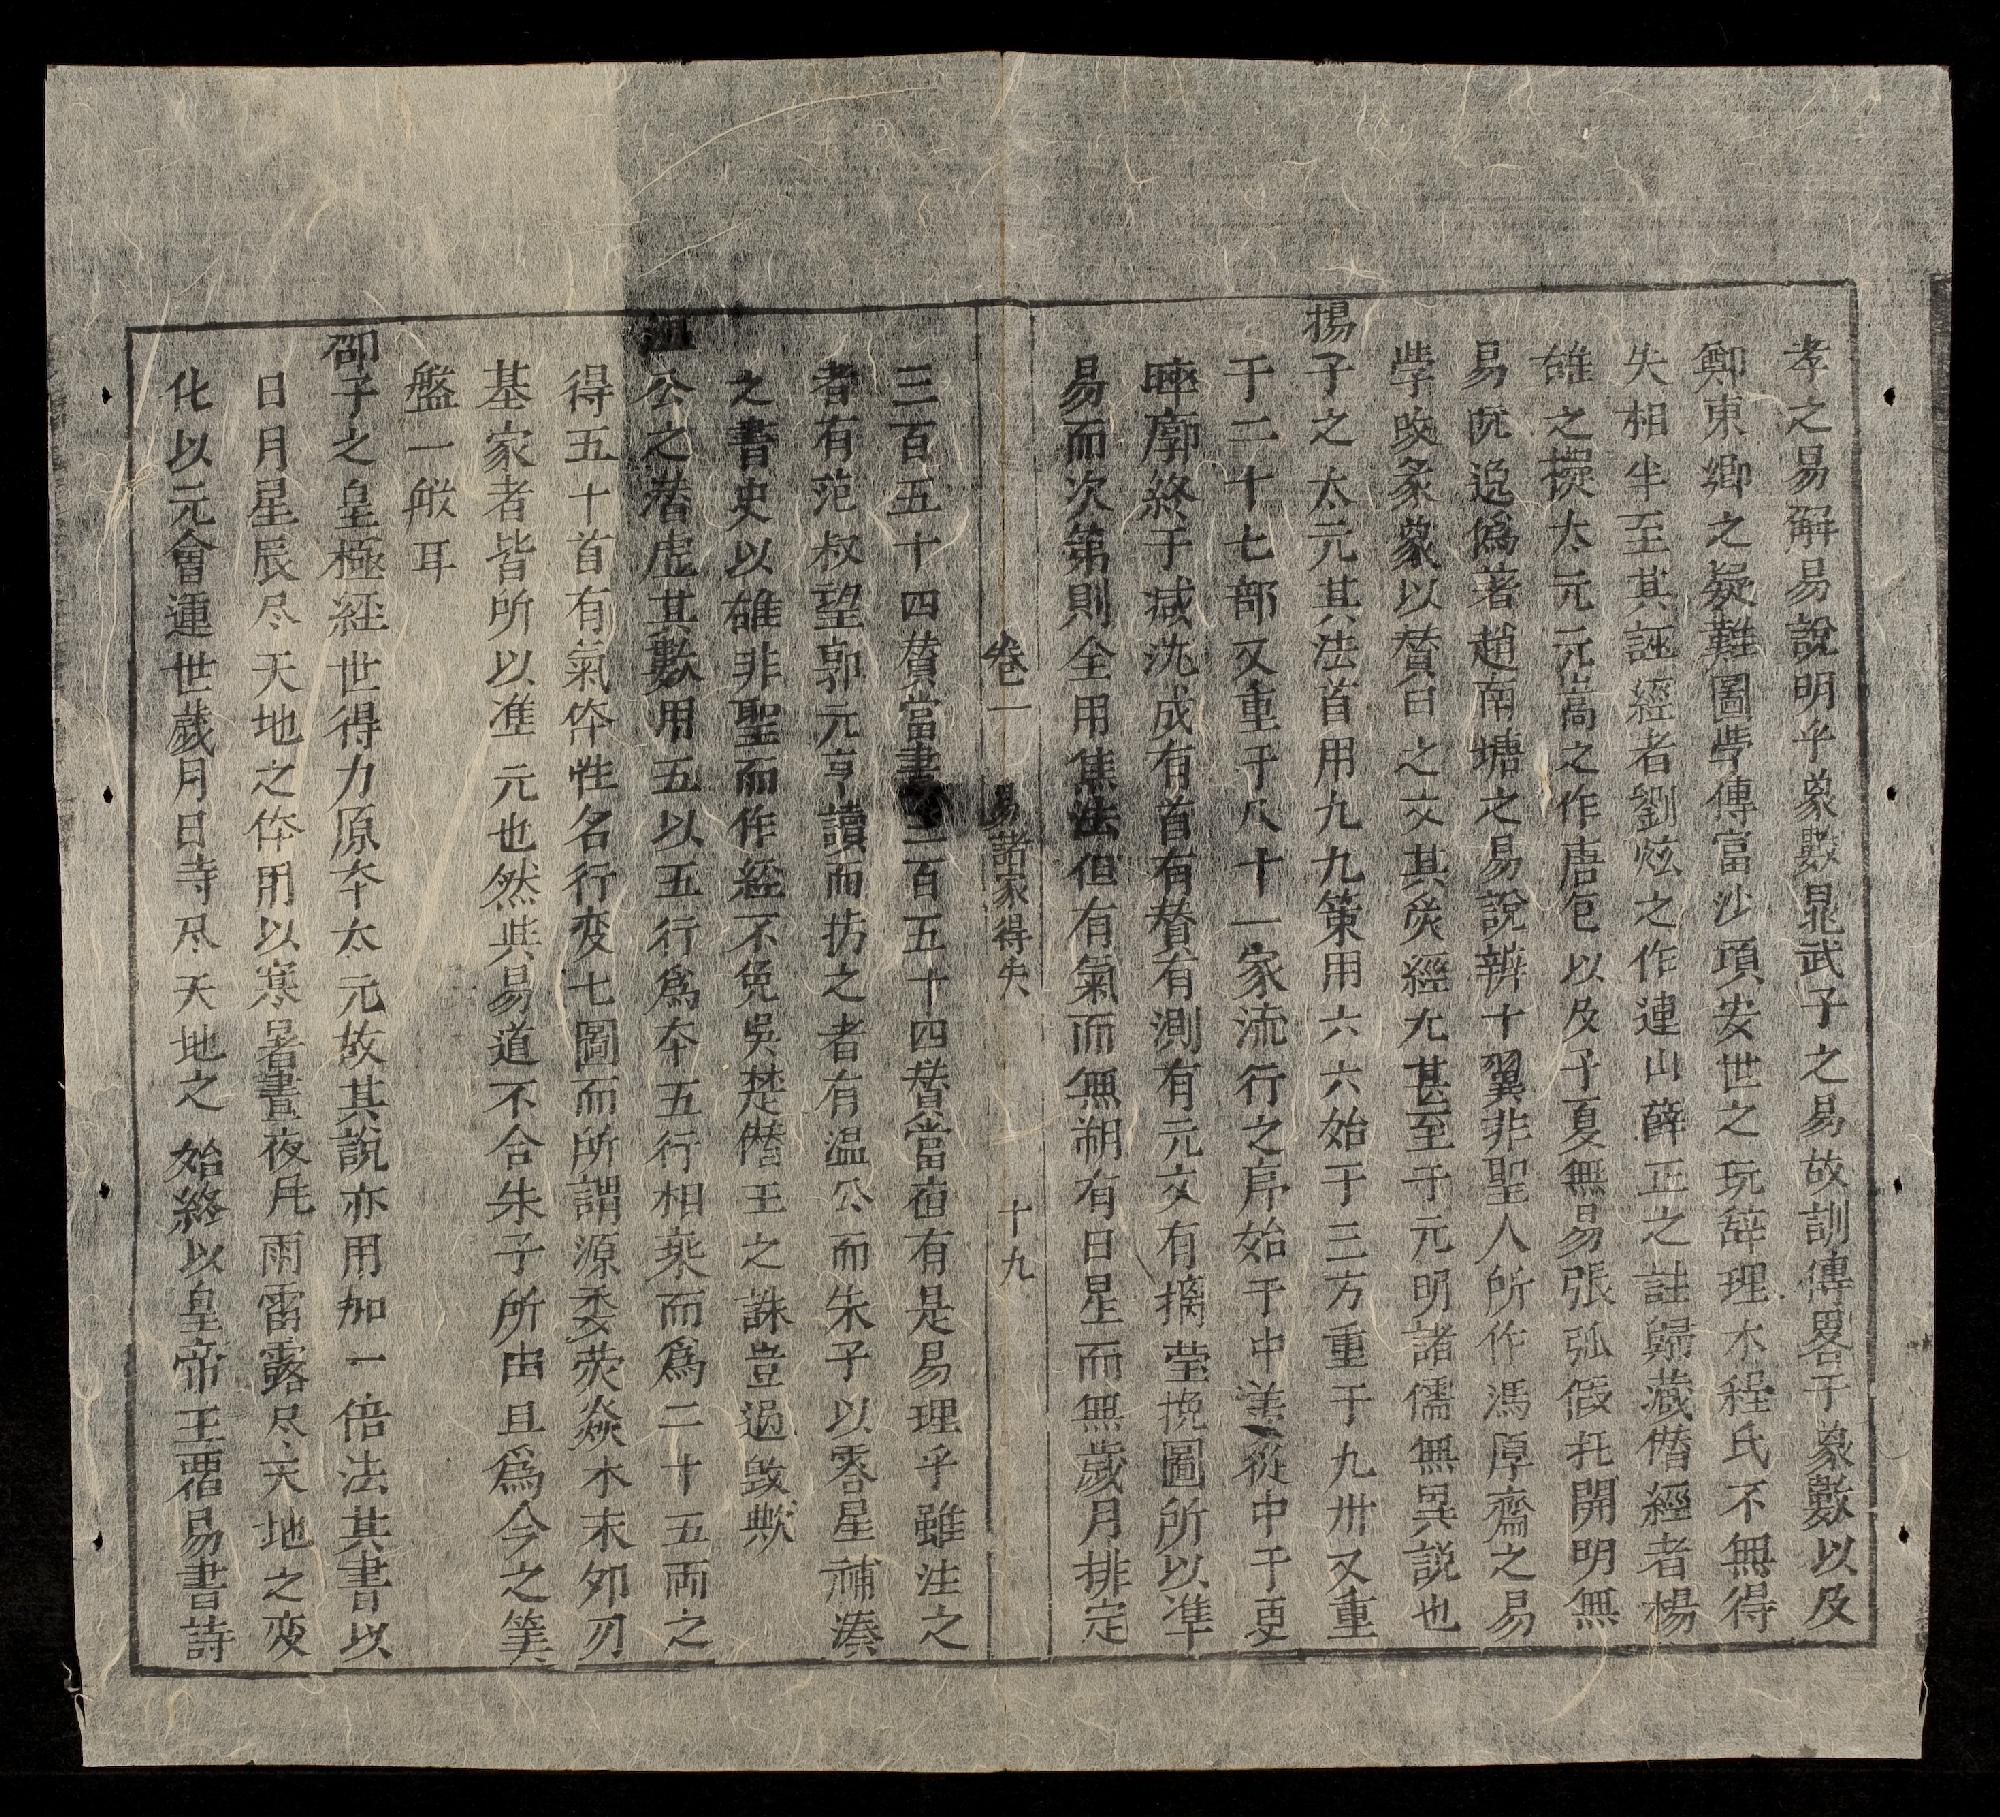 孝之易解易說明乎象數晁武子之易故訓傳畧于象數以及
鄭東卿之疑難圖學傳富沙項安世之玩辞理本程氏不無得
失相半至其誣經者劉炫之作連山薛正之註歸藏僣經者楊
雄之擬太元元嵩之作唐包以及子夏無易張弧假托開明無
易阮逸偽著趙南塘之易說辨十翼非聖人所作馮厚齋之易
學改彖蒙以賛曰之文其災經尤甚至于元明諸儒無異說也
揚子之太元其法首用九九策用六六始于三方重于九卅又重
于二十七部又重于八十一家流行之序始于中羨從中于更
睟廓終于减沈成有首有賛有測有元文有摛瑩掜圖所以準
易而次第則全用焦法但有氣而無朔有日星而無歲月排定
卷一 易諸家得失 十九
三百五十四賛當晝三百五十四賛當宿有是易理乎雖注之
者有范叔望郭元亨讀而扐之者有温公而朱子以零星補湊
之書史以雄非聖而作經不免吳楚僣王之誅豈過毁歟
温公之潛虚其數用五以五行爲本五行相乘而爲二十五兩之
得五十首有氣体性名行变七圖而所謂源委荧焱本末夘刃
基家者皆所以准元也然與易道不合朱子所由且爲今之筭
盤一㪇耳
邵子之皇極経世得力原本太元故其說亦用加一倍法其書以
日月星辰尽天地之体用以寒暑晝夜凡雨雷露尽天地之变
化以元會運世歲月日寺尽天地之始終以皇帝王覇易書詩